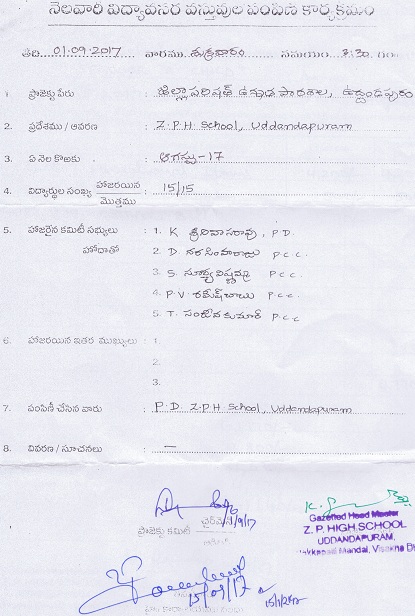 నెలవారీ విద్యావసర వస్తువుల పంపిణీ కార్యక్రమం
తేది 01-09-2017 వారము శుక్రవారం సమయం 8:30 గం
1. ప్రాజెక్టు పేరు : జిల్లా పరిషత్ ఉన్నత పాఠశాల, ఉద్దండపురం
2. ప్రదేశము / ఆవరణ : Z.P.H School, Uddandapuram
3. ఏ నెల కొఱకు : ఆగస్టు-17
4. విద్యార్థుల సంఖ్య హాజరయిన మొత్తము : 15/15
5. హాజరైన కమిటీ సభ్యులు : 1. K శ్రీనివాసరావు, P.D.
హోదాతో 2. D. నరసింహరాజు P.C.C.
3. S. సూర్య P.C.C.
4. P.V. P.C.C
5. T. సంజీవకుమార్ P.C.C
6. హాజరయిన ఇతర ముఖ్యులు : 1.
2.
3.
7. పంపిణీ చేసిన వారు : P.D. Z.P.H School, Uddandapuram
8. వివరణ / సూచనలు : —
1/9/17
ప్రాజెక్టు కమిటీ చైర్మెన్
Gazetted Head Master
Z. P. HIGH SCHOOL
UDDANDAPURAM,
Mandal, Visakha
15/09/17